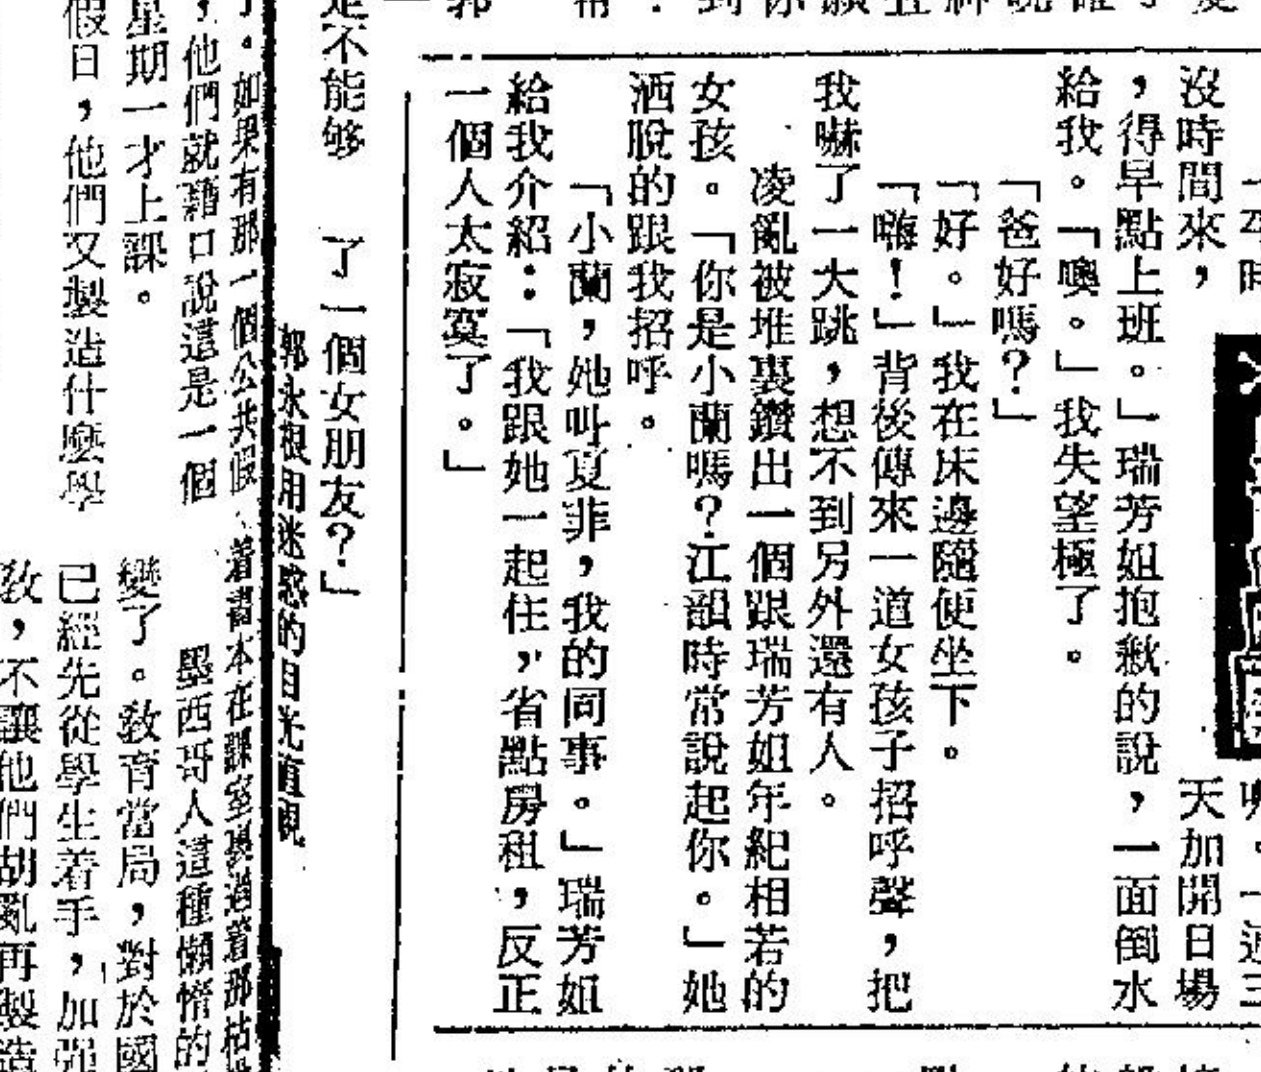 沒時間來，
天加開日場
，得早點上班。」瑞芳姐抱歉的說，一面倒水
給我。「噢。」我失望極了。
「爸好嗎？」
「好。」我在床邊隨便坐下。
「嗨！」背後傳來一道女孩子招呼聲，把
我嚇了一大跳，想不到另外還有人。
凌亂被堆裏鑽出一個跟瑞芳姐年紀相若的
女孩。「你是小蘭嗎？江韻時常說起你。」她
洒脫的跟我招呼。
「小蘭，她叫夏非，我的同事。」瑞芳姐
給我介紹：「我跟她一起住，省點房租，反正
一個人太寂寞了。」
是不能够
了一個女朋友？」
郭永根用迷惑的目光直視
着書本在課室裏過着那枯
了。如果有那一個公共假
，他們就藉口說這是一個
星期一才上課。
假日，他們又製造什麼學
墨西哥人這種懶惰的
變了。敎育當局，對於國
已經先從學生着手，加强
敎，不讓他們胡亂再製造